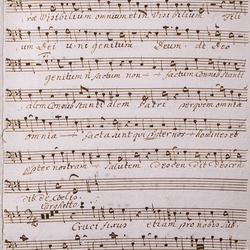 ræ Visibilium omnium et in Visibilium
um Dei unigenitum Deum de Deo
genitum factum non factum Consubstanti
alem Consubstantialem Patri per quem omnia
omnia facta sunt qui propter nos homines et
propter nostram Salutem Descendit Descen
dit de Coelis
Larghetto
Crucifixus etiam pro nobis sub